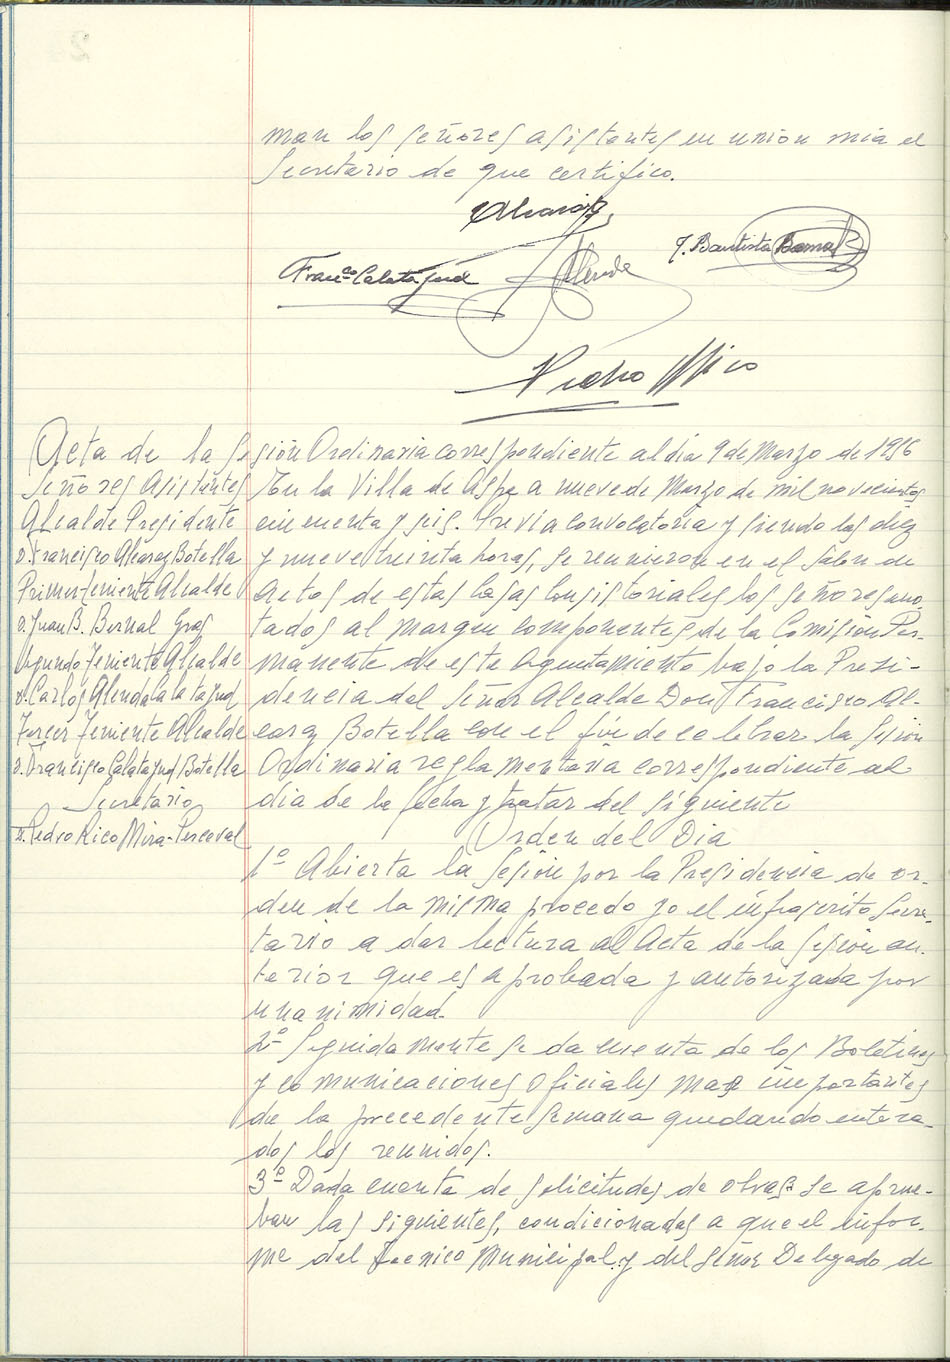 man los señores asistentes en union mia el
Secretario de que certifico.
Alvarez
J. Bautista Bernal
Franco Calatayud
Pedro Rico
Acta de la Sesión Ordinaria correspondiente al dia 9 de Marzo de 1956
Señores Asistentes
Alcalde Presidente
D. Francisco Alcaraz Botella
Primer Teniente Alcalde
D. Juan B. Bernal Gras
Segundo Teniente Alcalde
D. Carlos Alenda Calatayud
Tercer Teniente Alcalde
D. Francisco Calatayud Botella
Secretario
D. Pedro Rico Mira-Perceval
En la Villa de Aspe a nueve de Marzo de mil novecientos
cincuenta y seis. Previa convocatoria y siendo las diez
y nueve treinta horas, se reunieron en el Salon de
Actos de estas Casas Consistoriales los señores ano-
tados al margen componentes de la Comisión Per-
manente de este Ayuntamiento bajo la Presi-
dencia del Señor Alcalde Don Francisco Al-
caraz Botella con el fin de celebrar la Sesión
Ordinaria reglamentaria correspondiente al
dia de la fecha y tratar del siguiente
Orden del Dia
1º Abierta la Sesión por la Presidencia de or-
den de la misma procedo yo el infrascrito Secre-
tario a dar lectura al Acta de la Sesión an-
terior que es aprobada y autorizada por
unanimidad.
2º Seguidamente se da cuenta de los Boletines
y comunicaciones Oficiales mas importantes
de la precedente semana quedando entera-
dos los reunidos.
3º Dada cuenta de solicitudes de obras se aprue-
ban las siguientes, condicionadas a que el infor-
me del Tecnico Municipal y del Señor Delegado de